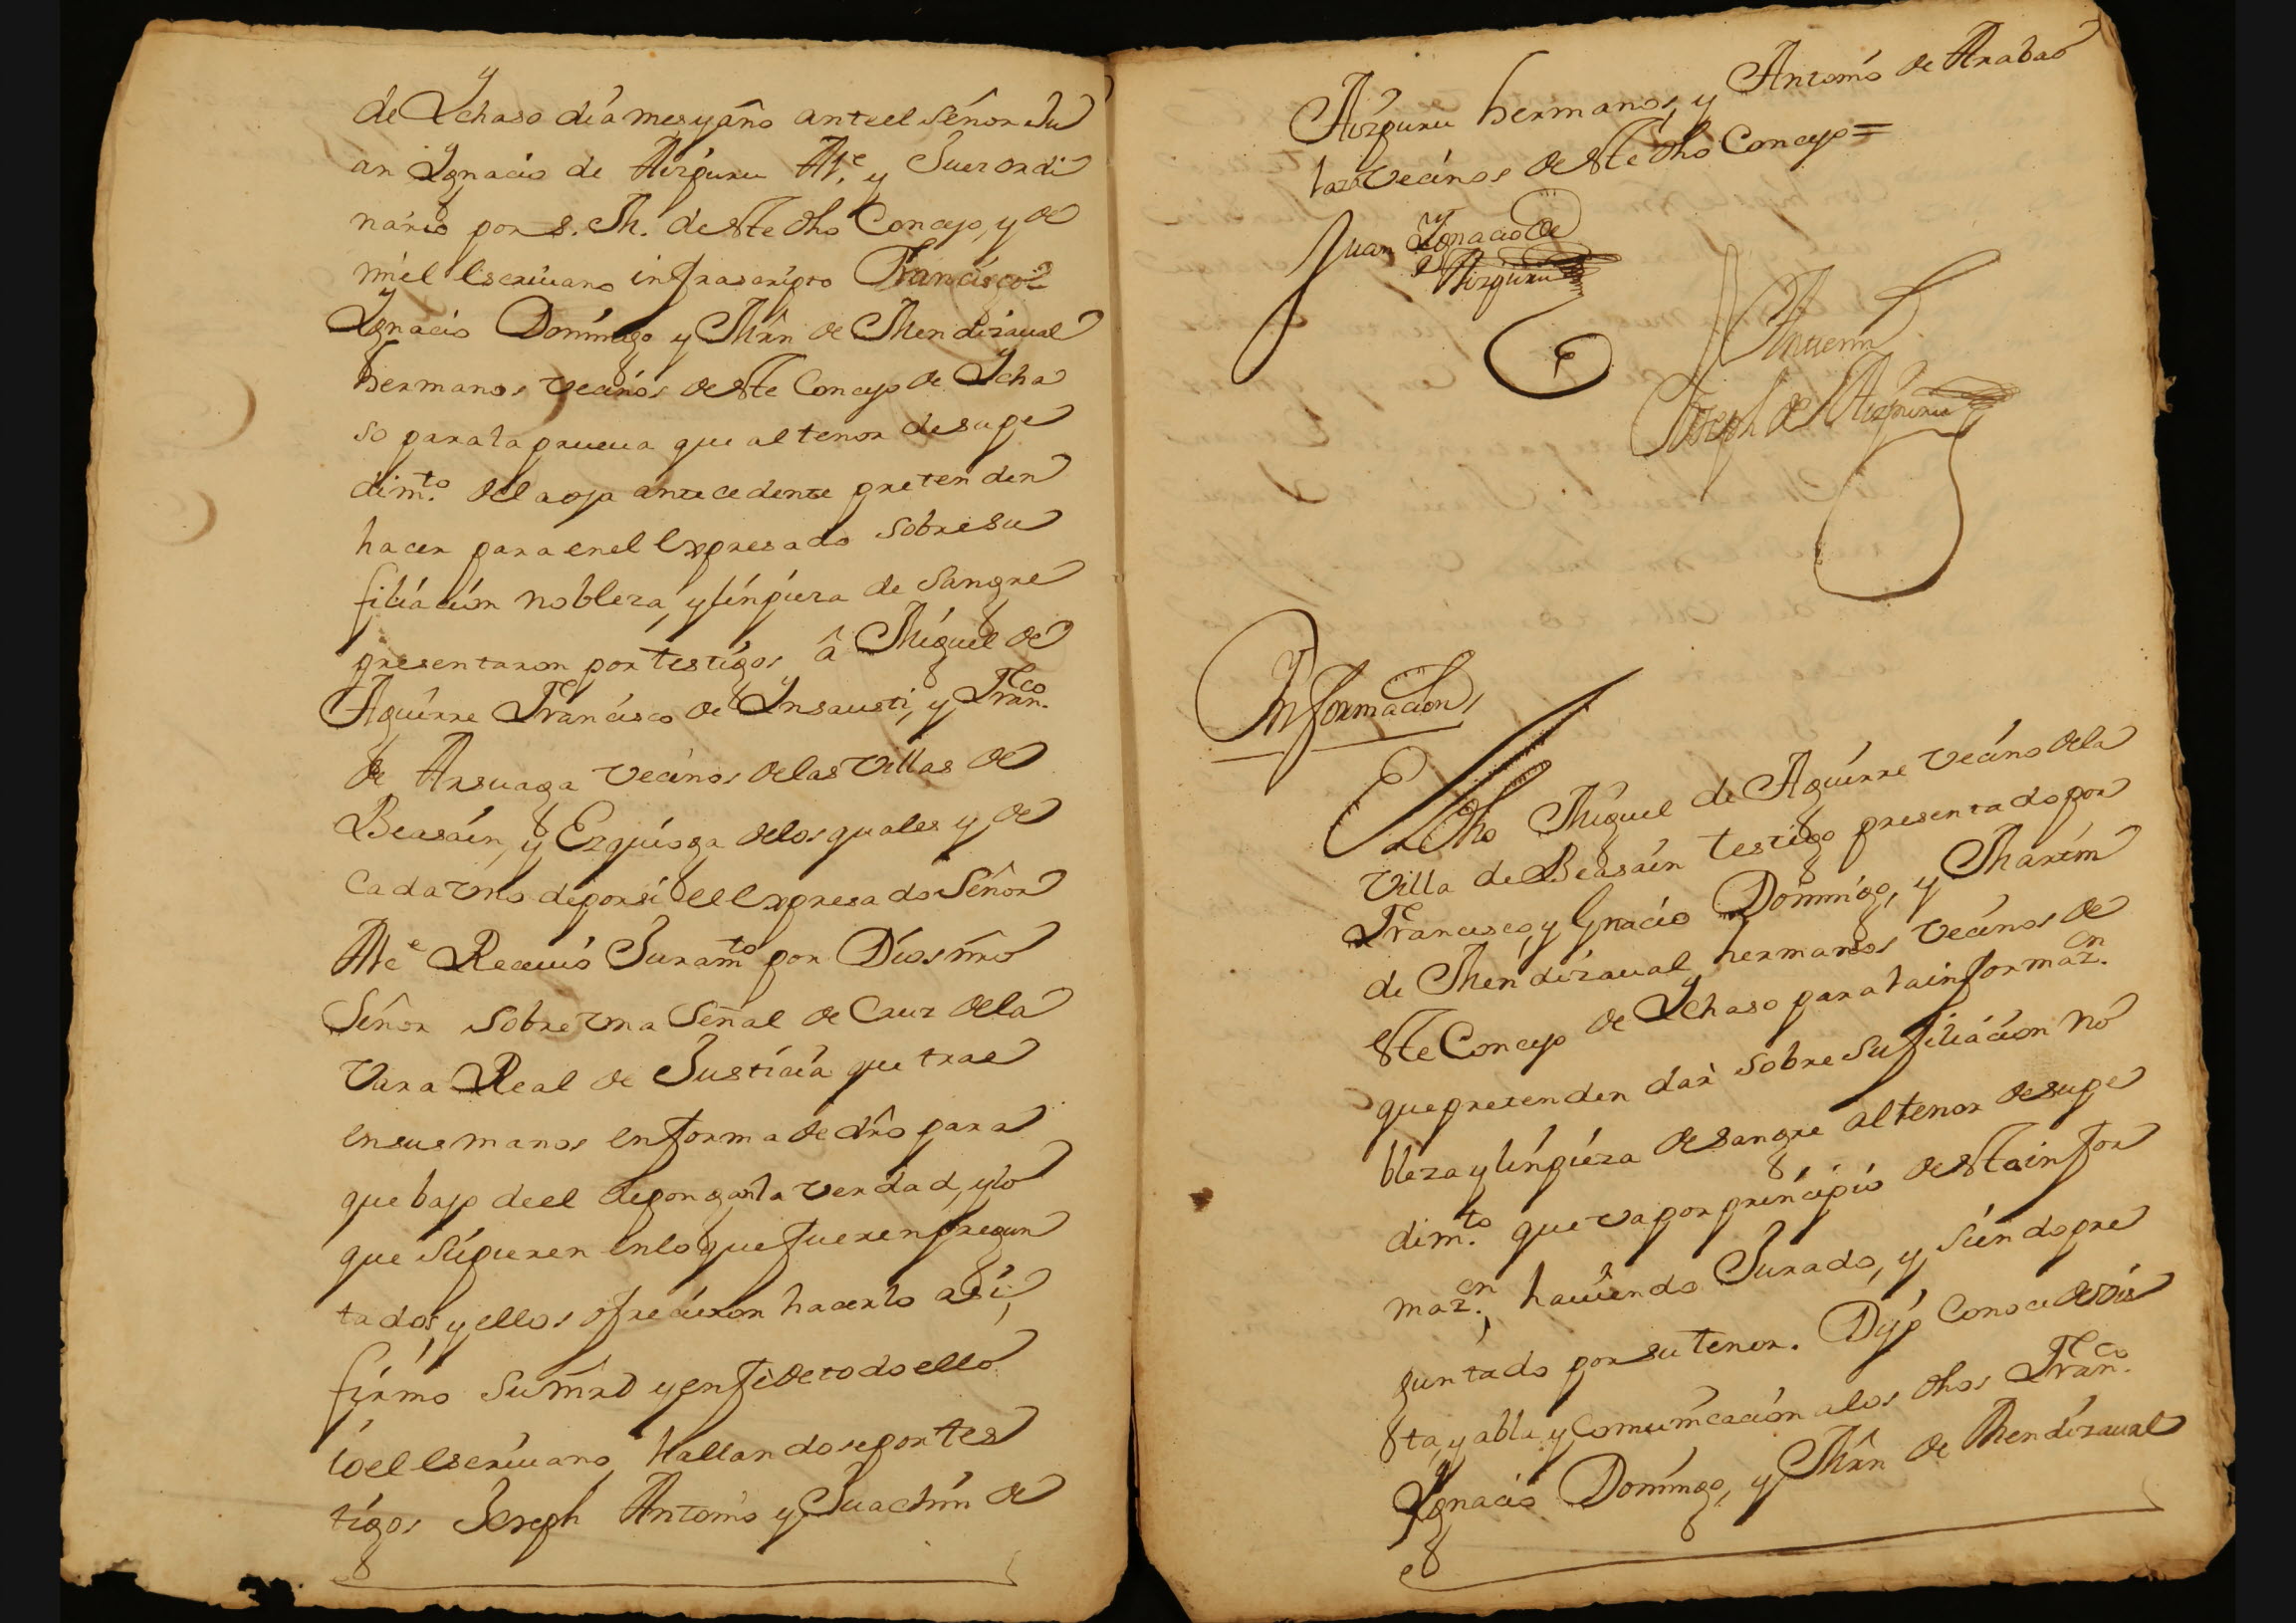 de Ychaso dia mes y año ante el Señor Ju
an Ygnacio de Aizpuru Alc.e y Juez ordi
nario por S. M. de este dho Concejo, y de
mi el escriuano infrascripto Francisco
Ygnacio Domingo y Mrn de Mendizaual
hermanos vecinos de este Concejo de Ycha
so para la prueua que al tenor de su pe
dim.to del aoja antecedente pretenden
hacer para en el expresado sobre su
filiacion nobleza, y linpieza de Sangre
presentaron por testigos â Miguel de
Aguirre Francisco de Ynsausti, y Fran.co
de Arsuaga vecinos de las Villas de
Beasain, y Ezquioga de los quales y de
cada vno de por si el expresado Señor
Alc.e Reciuio Juram.to por Dios nrô
Señor sobre vna Señal de Cruz de la
Vara Real de Justicia que trae
en sus manos en forma de drô para
que bajo de el depongan la verdad, y lo
que supieren en lo que fueren pregun
tados, y ellos ofrecieron hacerlo asi,
firmo su mrd y en fe de todo ello
io el escriuano, hallandose por tes
tigos Joseph Antonio y Juachin de
Aizpuru hermanos, y Antonio de Arabao
laza vecinos de este dho Concejo =
Juan Ygnacio de
Aizpuru
Antemi
Joseph de Aizpuru
Informacion,
El dho Miguel de Aguirre vecino de la
Villa de Beasain testigo presentado por
Francisco, y Ignacio Domingo, y Martin
de Mendizaual hermanos vecinos de
este Concejo de Ychaso para la informaz.cn
que pretenden dar sobre su filiacion no
bleza y linpieza de sangre al tenor de su pe
dim.to que va por principio de esta infor
maz.cn, hauiendo Jurado, y siendo pre
guntado por su tenor. Dijo conoce de vis
ta, y abla y comunicacion a los dhos Fran.co
Ygnacio Domingo, y Mrn de Mendizaual